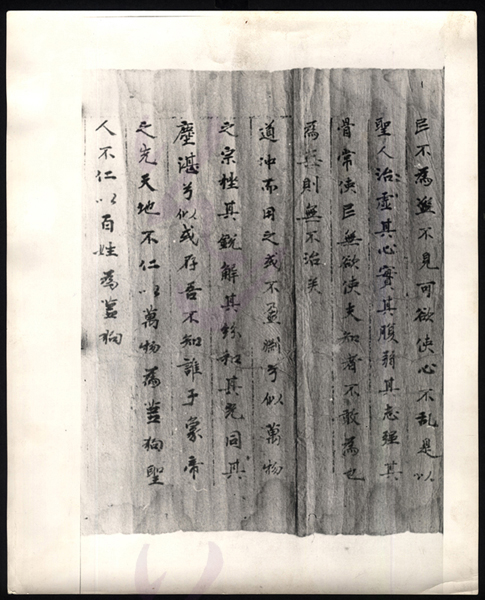 民不為盜不見可欲使心不乱是以
聖人治虛其心實其腹弱其志強其
骨常使民無欲使夫知者不敢為也
為無則無不治矣
道冲而用之或不盈渊兮似萬物
之宗挫其銳解其紛和其光同其
塵湛兮似或存吾不知誰子象帝
之先天地不仁以萬物為蒭狗聖
人不仁以百姓為蒭狗